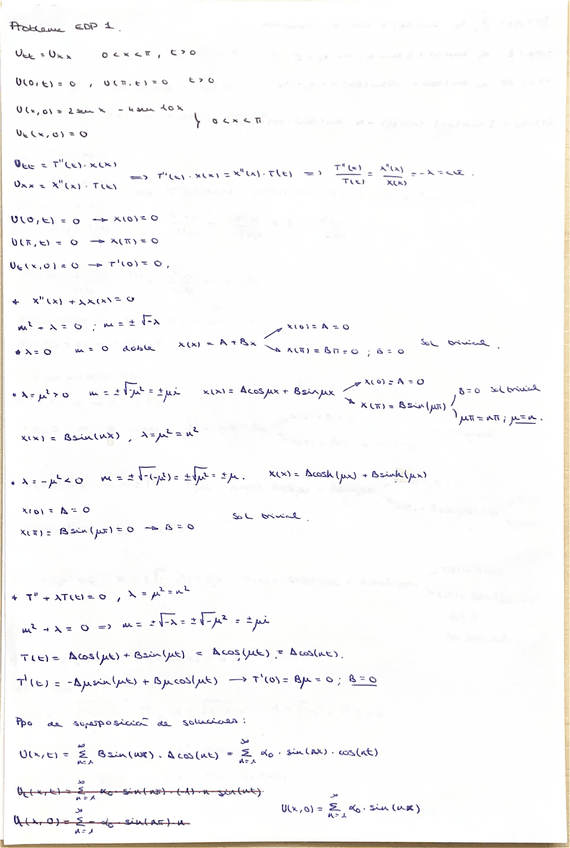 Problema EDP 1.
Utt = Uxx 0 < x < π, t > 0
U(0,t) = 0 , U(π,t) = 0 t > 0
U(x,0) = 2sen x - 4sen 10x
Ut(x,0) = 0 } 0 < x < π
Utt = T''(t)·X(x)
Uxx = X''(x)·T(t) => T''(t)·X(x) = X''(x)·T(t) => T''(t)/T(t) = X''(x)/X(x) = -λ = cte.
U(0,t) = 0 → X(0) = 0
U(π,t) = 0 → X(π) = 0
Ut(x,0) = 0 → T'(0) = 0.
* X''(x) + λX(x) = 0
m² + λ = 0 ; m = ± √-λ
• λ = 0 m = 0 doble X(x) = A + Bx → X(0) = A = 0
→ X(π) = Bπ = 0 ; B = 0 Sol trivial.
• λ = μ² > 0 m = ±√-μ² = ±μi X(x) = Acosμx + Bsinμx → X(0) = A = 0
→ X(π) = Bsin(μπ) B = 0 Sol trivial
μπ = nπ ; μ = n.
X(x) = Bsin(nx) , λ = μ² = n²
• λ = -μ² < 0 m = ±√-(-μ²) = ±√μ² = ±μ. X(x) = Acosh(μx) + Bsinh(μx)
X(0) = A = 0
X(π) = Bsin(μπ) = 0 → B = 0 Sol trivial.
* T'' + λT(t) = 0 , λ = μ² = n²
m² + λ = 0 => m = ±√-λ = ±√-μ² = ±μi
T(t) = Acos(μt) + Bsin(μt) = Acos(μt) = Acos(nt).
T'(t) = -Aμsin(μt) + Bμcos(μt) → T'(0) = Bμ = 0 ; B = 0
Ppo de superposición de soluciones:
U(x,t) = ∑ n=1 ∞ Bsin(nx) · Acos(nt) = ∑ n=1 ∞ α₀ · sin(nx) · cos(nt)
Ut(x,t) = ∑ n=1 ∞ α₀ · sin(nπ) · (-1) · n · sin(nt)
Ut(x,0) = ∑ n=1 ∞ -α₀ · sin(nπ) · n U(x,0) = ∑ n=1 ∞ α₀ · sin(nx)